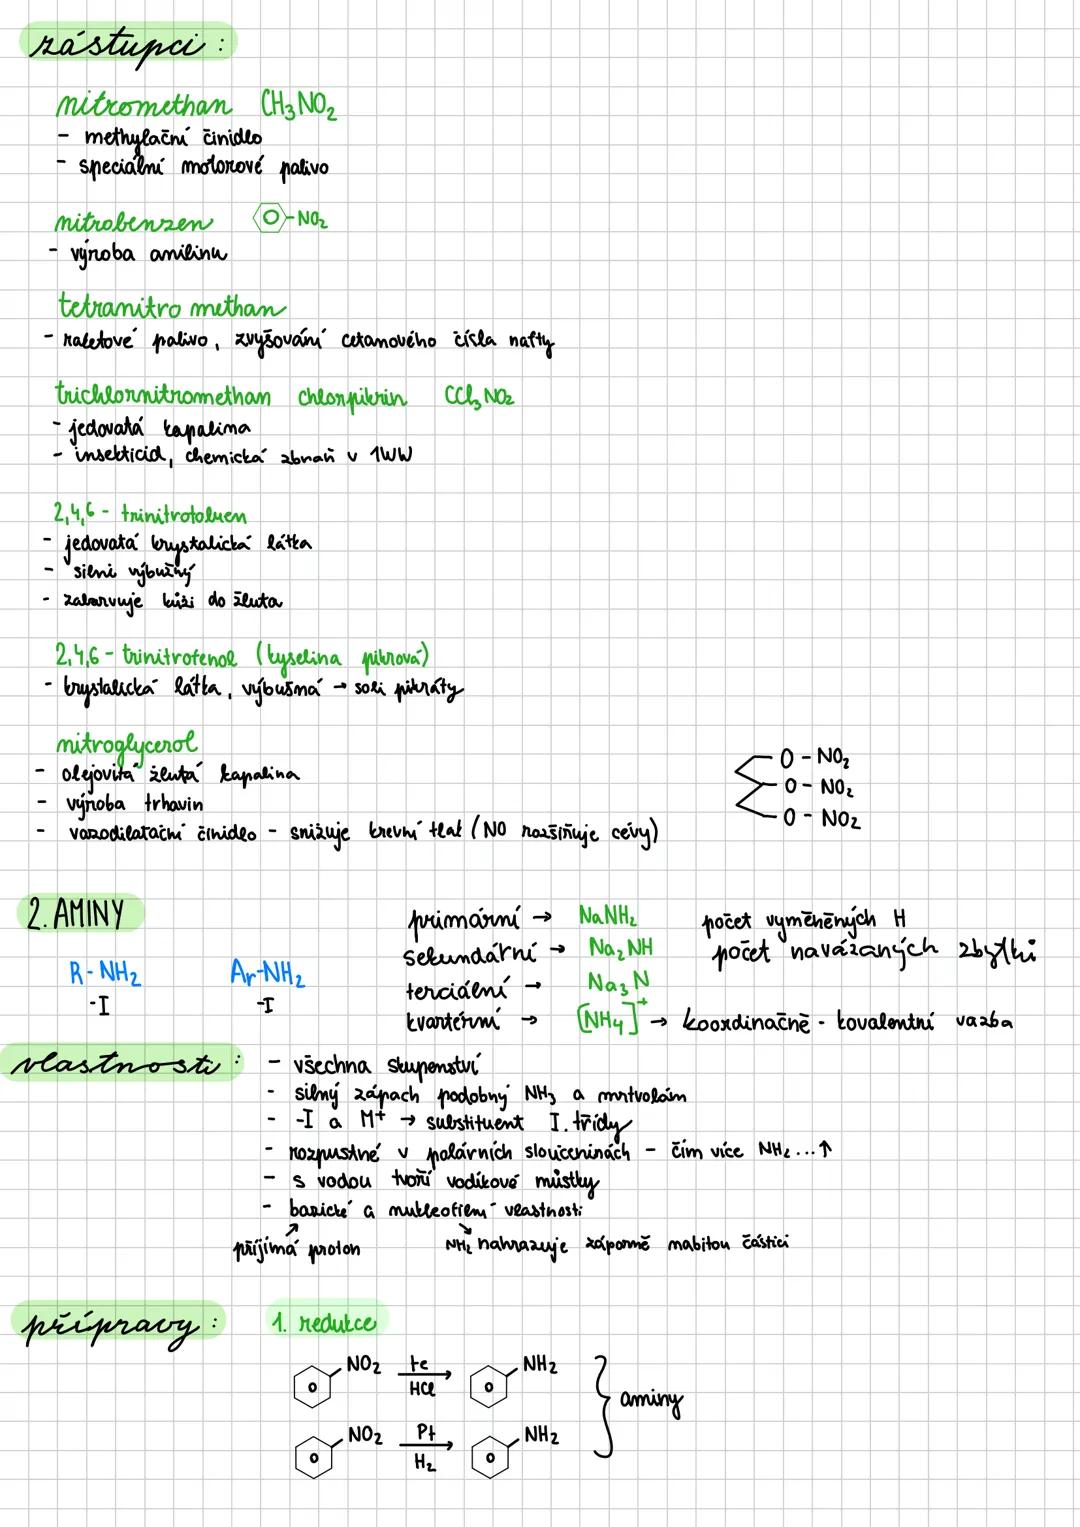 zástupci :
nitromethan CH3NO2
- methylační činidlo
- speciální motorové palivo
nitrobenzen -NO2
- výroba anilinu
tetranitro methan
- raketové palivo, zvyšování cetanového čísla nafty
trichlornitromethan chlorpikrin CCl3NO2
- jedovatá kapalina
- insekticid, chemická zbraň v 1WW
2,4,6 - trinitrotoluen
- jedovatá krystalická látka
- silně výbušný
- zabarvuje kůži do žluta
2,4,6 - trinitrofenol (kyselina pikrová)
- krystalická látka, výbušná → soli pikráty
nitroglycerol
- olejovitá žlutá kapalina
- výroba trhavin
- vazodilatační činidlo - snižuje krevní tlak (NO rozšiřuje cévy)
O - NO2
O - NO2
O - NO2
2. AMINY
R - NH2 Ar-NH2
-I -I
primární → NaNH2 počet vyměněných H
sekundární → Na2NH počet navázaných zbytků
terciální → Na3N
kvartérní → [NH4]+ → koordinačně - kovalentní vazba
vlastnosti :
- všechna skupenství
- silný zápach podobný NH3 a mrtvolám
- -I a M+ → substituent I. třídy
- rozpustné v polárních sloučeninách - čím více NH2 ... ↑
- s vodou tvoří vodíkové můstky
- bazické a nukleofilní vlastnosti
přijímá proton NH2 nahrazuje záporně nabitou částici
přípravy :
1. redukce
NO2 Fe HCl NH2
NO2 Pt H2 NH2
aminy